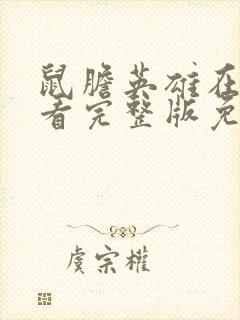 鼠膽英雄在
看完整版免
虞宗權